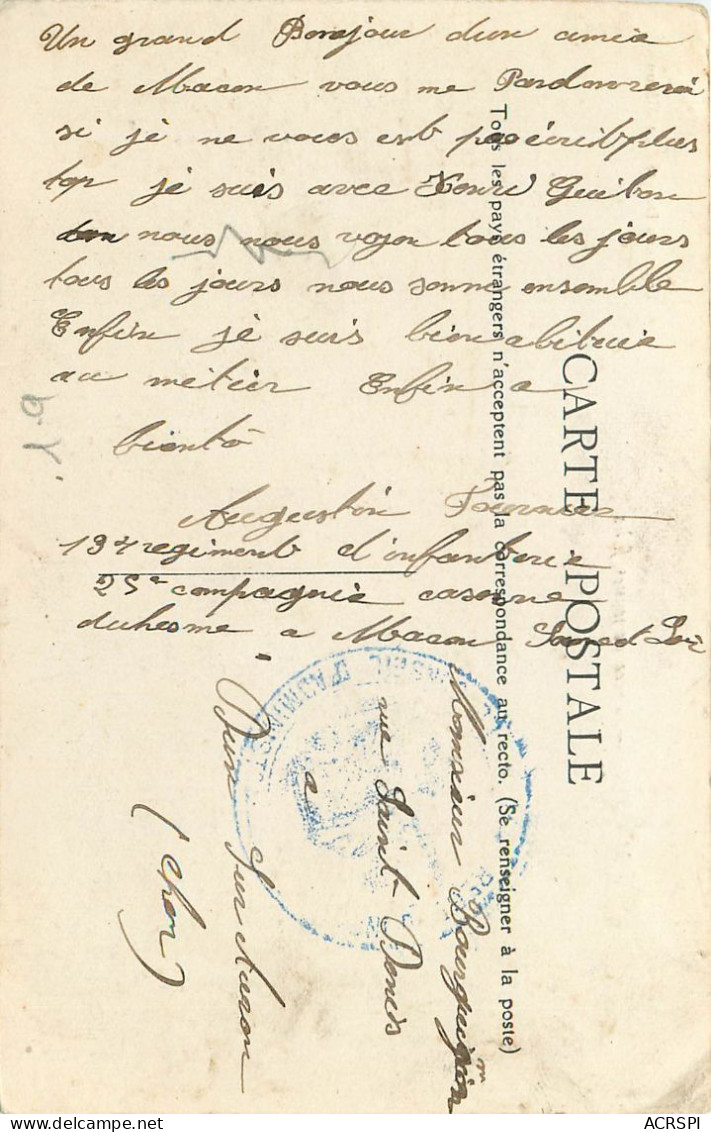 Un grand Bonjour dun amie
de Macon vous me Pardonnerai
si je ne vous est pas écrit plus
top je suis avec Henri Guiton
nous nous voyon tous les jours
tous les jours nous somme ensemble
Enfin je suis bien abituie
au métier Enfin a
bientô
Augustin Fournier
134 regiment d'infanterie
25e compagnie caserne
duhesme a Macon Saone et Loir
CARTE POSTALE
Tous les pays étrangers n'acceptent pas la correspondance au recto. (Se renseigner à la poste)
Monsieur Bourguignon
rue Saint Denis
a
Dun Sur Auron
(Cher)
D'ADMINIST
ACRSPI